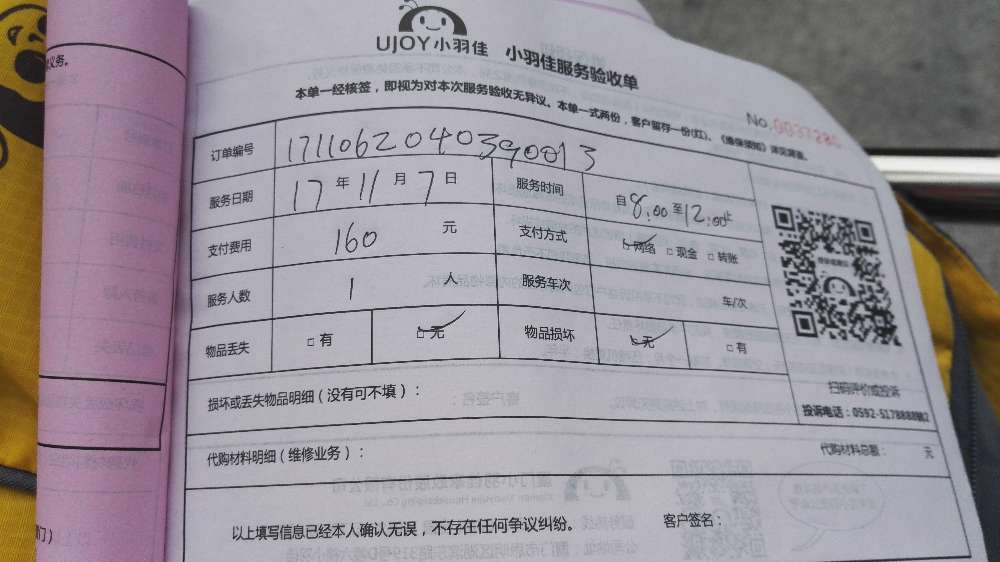 UJOY小羽佳 小羽佳服务验收单
本单一经核签，即视为对本次服务验收无异议。本单一式两份，客户留存一份(红)。《维保须知》详见背面。
No.0037280
订单编号 1711062040390013
服务日期 17年11月7日 服务时间 自8:00至12:00止
支付费用 160元 支付方式 ☑网络 □现金 □转账
服务人数 1人 服务车次 车/次
物品丢失 □有 ☑无 物品损坏 ☑无 □有
扫码评价或投诉
投诉电话：0592-5178888转2
损坏或丢失物品明细（没有可不填）：
代购材料明细（维修业务）： 代购材料总额： 元
以上填写信息已经本人确认无误，不存在任何争议纠纷。 客户签名：